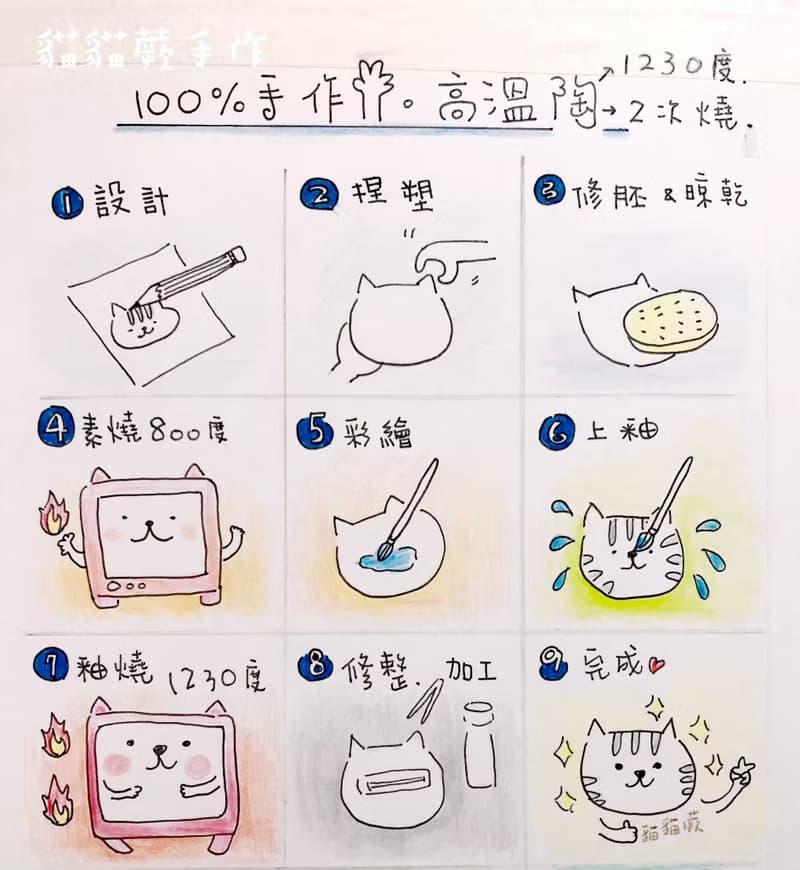 貓貓蕨手作
100%手作。高溫陶
→1230度.
→2次燒.
1 設計
2 捏塑
3 修胚&晾乾
4 素燒800度
5 彩繪
6 上釉
7 釉燒 1230度
8 修整.加工
9 完成♥
貓貓蕨